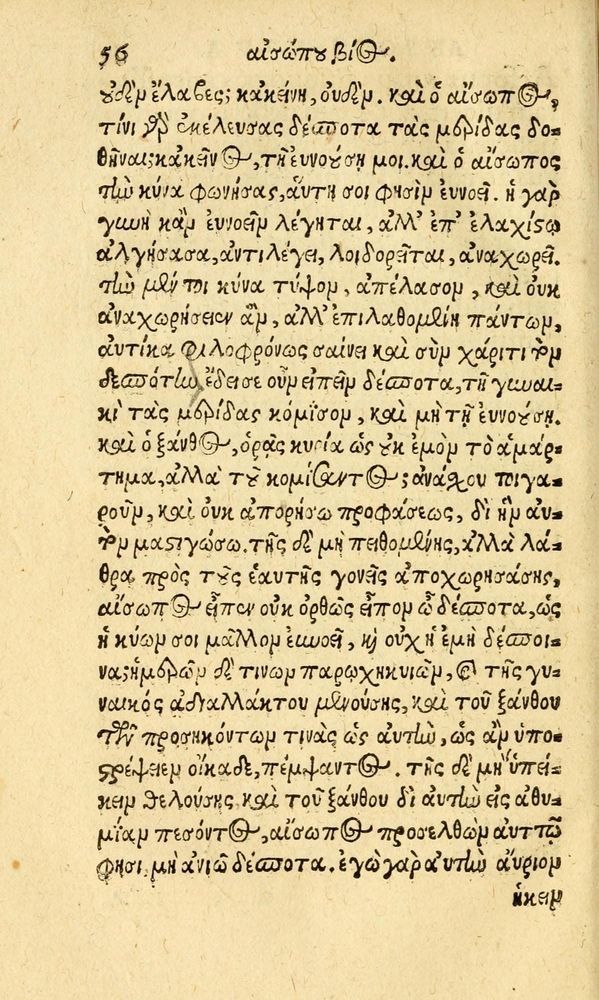 56 αἰσώπου βίος.
οὐδὲν ἔλαβες; κἀκείνη, οὐδὲν. καὶ ὁ αἴσωπος,
τίνι γὰρ ἐκέλευσας δέσποτα τὰς μερίδας δο-
θῆναι; κἀκεῖνος, τῇ εὐνούσῃ μοι. καὶ ὁ αἴσωπος
τὴν κύνα φωνήσας, αὕτη σοι φησὶν εὐνοεῖ. ἡ γὰρ
γυνὴ κἂν εὐνοεῖν λέγηται, ἀλλ' ἐπ' ἐλαχίστῳ
ἀλγήσασα, ἀντιλέγει, λοιδορεῖται, ἀναχωρεῖ.
τὴν μέν τοι κύνα τύψον, ἀπέλασον, καὶ οὐκ
ἀναχωρήσειεν ἂν, ἀλλ' ἐπιλαθομένη πάντων,
αὐτίκα φιλοφρόνως σαίνει καὶ σὺν χάριτι τὸν
δεσπότην, ἔδει σε οὖν εἰπεῖν δέσποτα, τῇ γυναι-
κὶ τὰς μερίδας κόμισον, καὶ μὴ τῇ εὐνούσῃ.
καὶ ὁ ξάνθος, ὁρᾷς κυρία ὡς οὐκ ἐμὸν τὸ ἁμάρ-
τημα, ἀλλὰ τοῦ κομίσαντος; ἀνάσχου τοιγα-
ροῦν, καὶ οὐκ ἀπορήσω προφάσεως, δι ἣν αὐ-
τὸν μαστιγώσω. τῆς δὲ μὴ πειθομένης, ἀλλὰ λά-
θρα πρὸς τοὺς ἑαυτῆς γονεῖς ἀποχωρησάσης,
αἴσωπος εἶπεν οὐκ ὀρθῶς εἶπον ὦ δέσποτα, ὡς
ἡ κύων σοι μᾶλλον εὐνοεῖ, καὶ οὐχ ἡ ἐμὴ δέσποι-
να; ἡμερῶν δὲ τινων παρῳχηκυιῶν, καὶ τῆς γυ-
ναικὸς ἀδιαλλάκτου μενούσης, καὶ τοῦ ξάνθου
τῶν προσηκόντων τινὰς ὡς αὐτὴν, ὡς ἂν ὑπο-
στρέψειεν οἴκαδε, πέμψαντος. τῆς δὲ μὴ ὑπεί-
κειν θελούσης καὶ τοῦ ξάνθου δι αὐτὴν εἰς ἀθυ-
μίαν πεσόντος, αἴσωπος προσελθὼν αὐτῷ
φησι, μὴ ἀνιῶ δέσποτα. ἐγὼ γὰρ αὐτὴν αὔριον
ἥκειν